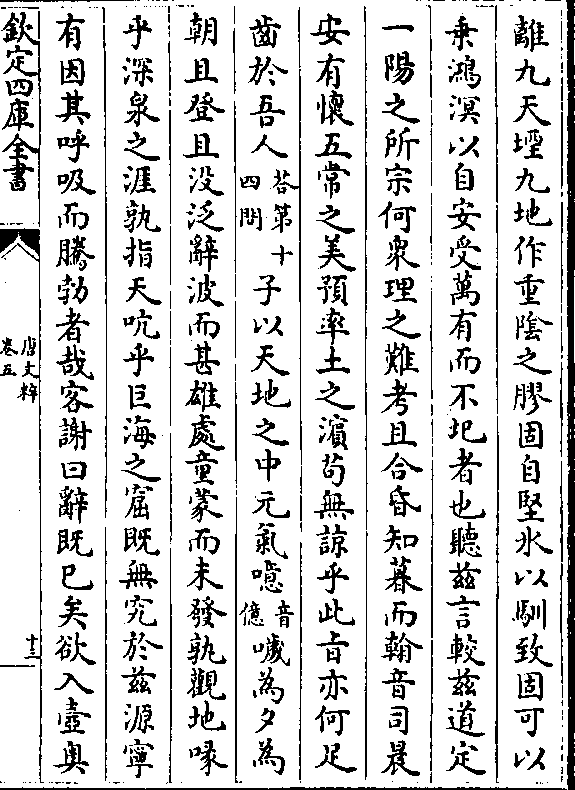 離九天堙九地作重陰之膠固自堅氷以馴致固可以
乗鴻溟以自安受萬有而不圮者也聽兹言較兹道定
一陽之所宗何衆理之難考且合昏知暮而翰音司晨
安有懷五常之美預率土之濵茍無諒乎此㫖亦何足
齒於吾人
荅第十
四問
子以天地之中元氣噫
音
億
噦為夕為
朝且登且没泛辭波而甚雄處童蒙而未發孰觀地喙
乎深泉之涯孰指天吭乎巨海之窟既無究於兹源寧
有因其呼吸而騰勃者哉客謝曰辭既已矣欲入壼奥
欽定四庫全書
唐文粹
卷五
十三